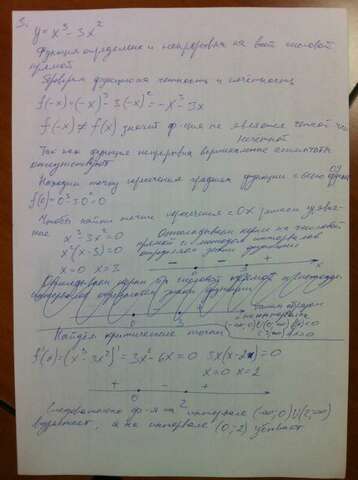 3.
y = x³ - 3x²
Функция определена и непрерывна на всей числовой
прямой
Проверим функцию на четность и нечётность
f(-x) = (-x)³ - 3(-x)² = -x³ - 3x
f(-x) ≠ f(x) значит ф-ция не является четной
нечетной
Так как функция непрерывна вертикальные асимптоты
отсутствуют
Находим точку пересечения графика функции с осью ОУ
f(0) = 0³ - 3·0² = 0
Чтобы найти точки пересечения с 0х решаем уравне-
ние x³ - 3x² = 0
x²(x - 3) = 0
x = 0 x = 3
Откладываем корни на числовой
прямой и методом интервалов
определяем знаки функции
- - +
0 3
Найдём критические точки
f'(0) = (x³ - 3x²)' = 3x² - 6x = 0 3x(x - 2) = 0
x = 0 x = 2
+ - +
0 2
Следовательно ф-я на интервале (-∞; 0)U(2; ∞)
возрастает, а на интервале (0; 2) убывает